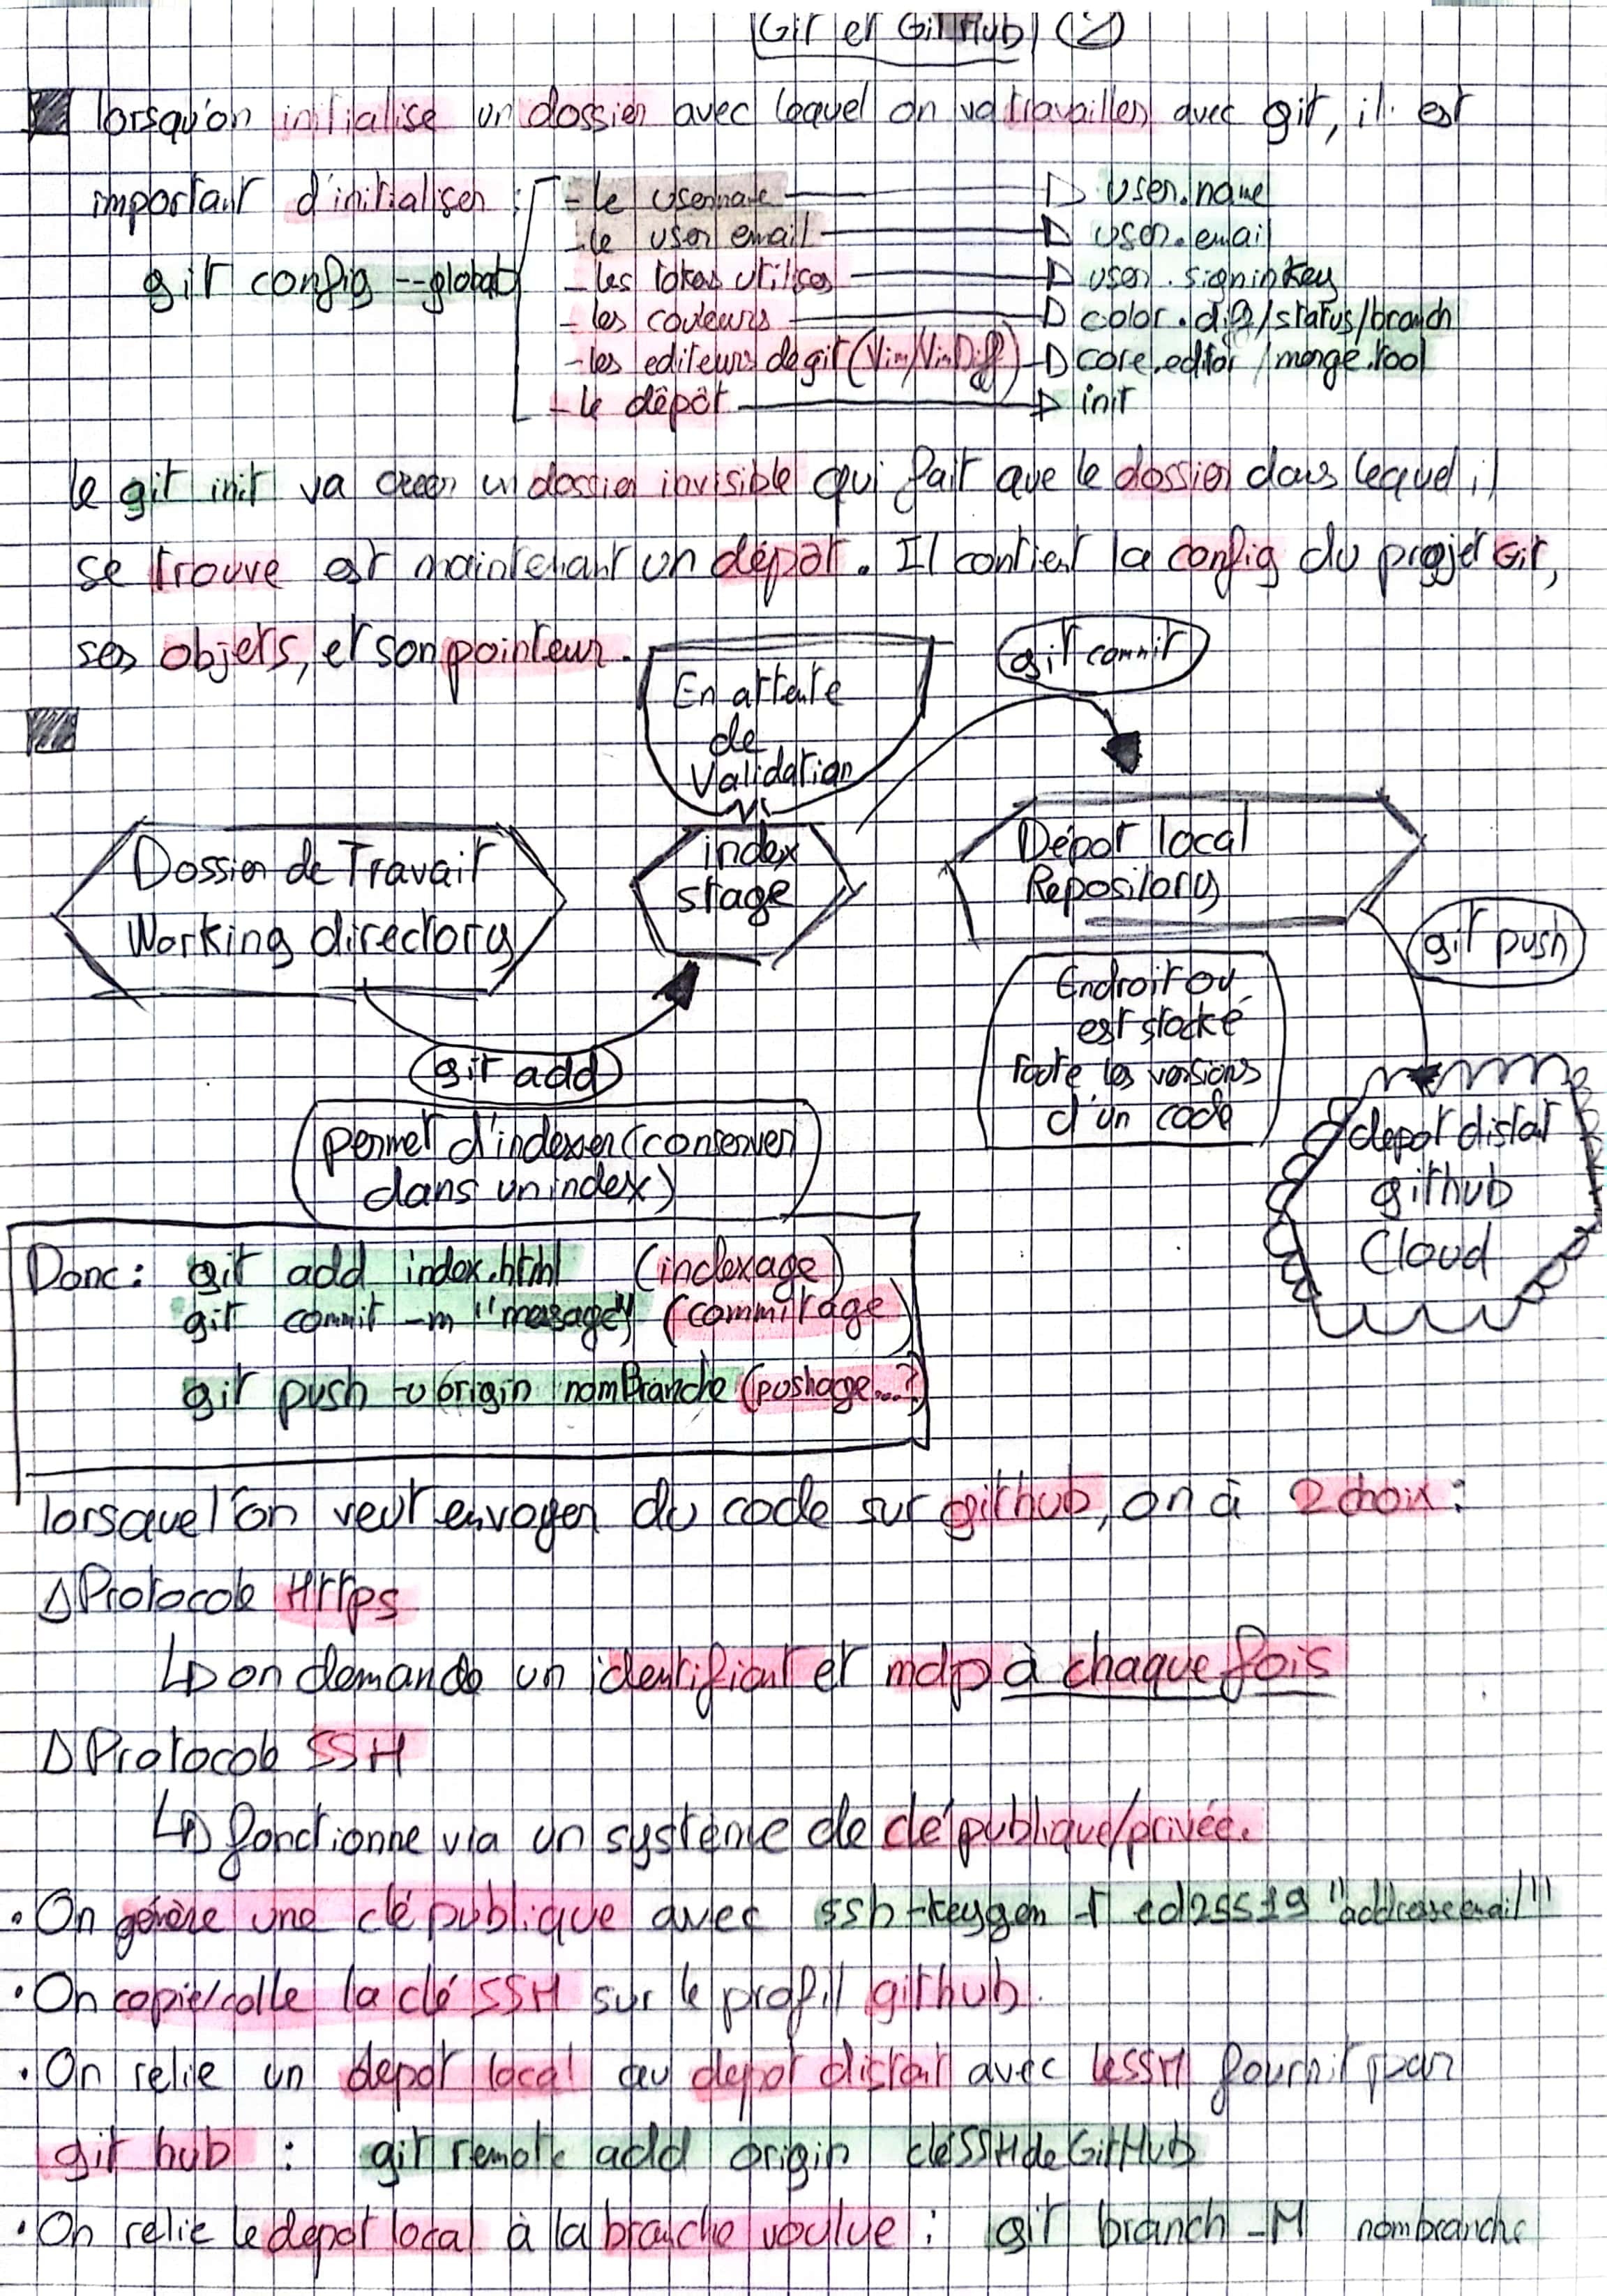 Git et GitHub (2)
lorsqu'on initialise un dossier avec lequel on va travailler avec git, il est
important d'initialiser :
git config --global
- le username → user.name
- le user email → user.email
- les tokes utilises → user.signinkey
- les couleurs → color.diff/status/branch
- les editeurs de git (Vim/VimDiff) → core.editor/merge.tool
- le dêpôt → init
le git init va creer un dossier invisible qui fait que le dossier dans lequel il
se trouve est maintenant un dépot. Il contient la config du projet Git,
ses objets, et son pointeur.
En attente
de
Validation
git commit
Dossier de Travail
Working directory
index
stage
Dépot local
Repository
git push
git add
permet d'indexer (conserver
dans un index)
Endroit ou
est stocké
toute les versions
d'un code
depot distat
github
Cloud
Donc: git add index.html (indexage)
git commit -m "message" (commitage)
git push -u origin nomBranche (pushage...?)
lorsque l'on veut envoyer du code sur github, on à 2 choix :
Protocole Https
on demande un identifiant et mdp à chaque fois
Protocole SSH
fonctionne via un système de clé publique/privée.
• On génère une clé publique avec ssh-keygen -t ed25519 "addresse email"
• On copie/colle la clé SSH sur le profil github.
• On relie un depot local au depot distant avec le SSH fournit par
git hub : git remote add origin cléSSHdeGitHub
• On relie le depot local à la branche voulue : git branch -M nombranche